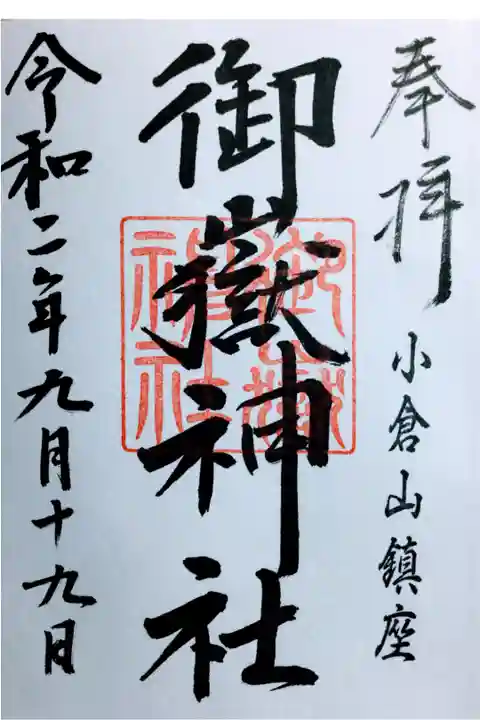 奉拝
小倉山鎮座
御嶽神社
御嶽神社
令和二年九月十九日